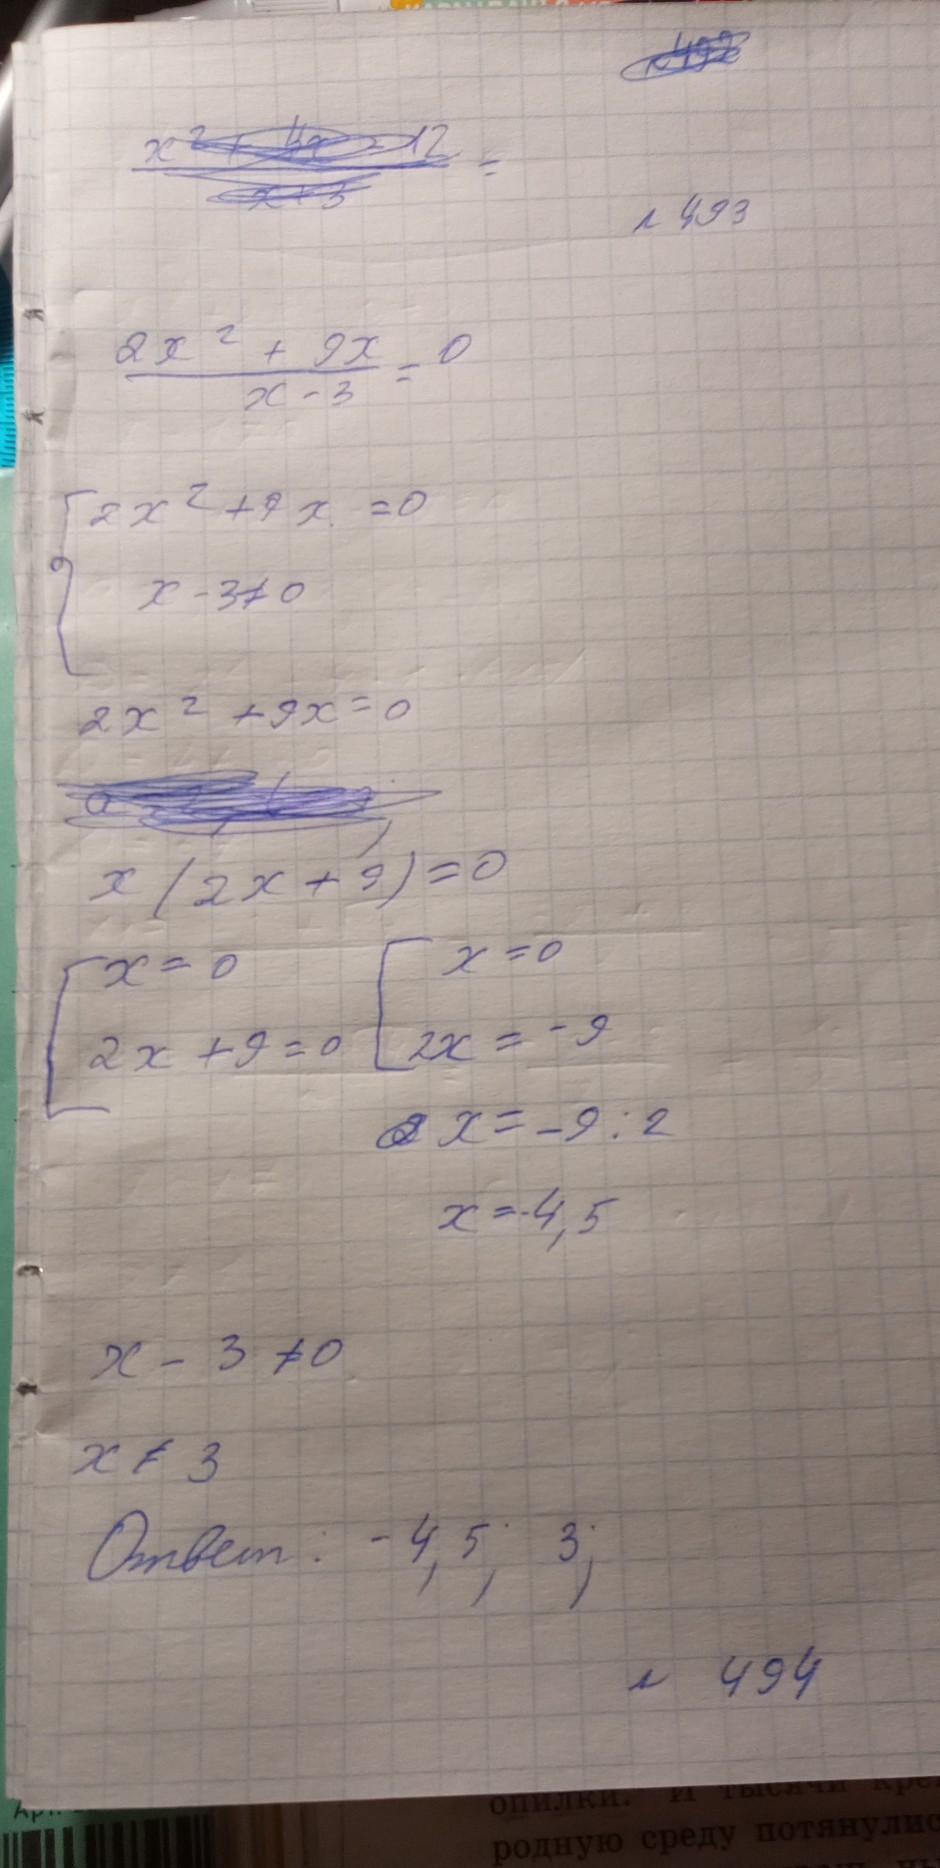 x² + 4x - 12
=
x+3
№ 493
2x² + 9x
= 0
x - 3
2x² + 9x = 0
x - 3 ≠ 0
2x² + 9x = 0
x (2x + 9) = 0
x = 0 x = 0
2x + 9 = 0 2x = -9
x = -9 : 2
x = -4,5
x - 3 ≠ 0
x ≠ 3
Ответ: -4,5; 3;
№ 494
опилки. И тысячи
родную среду потянулис